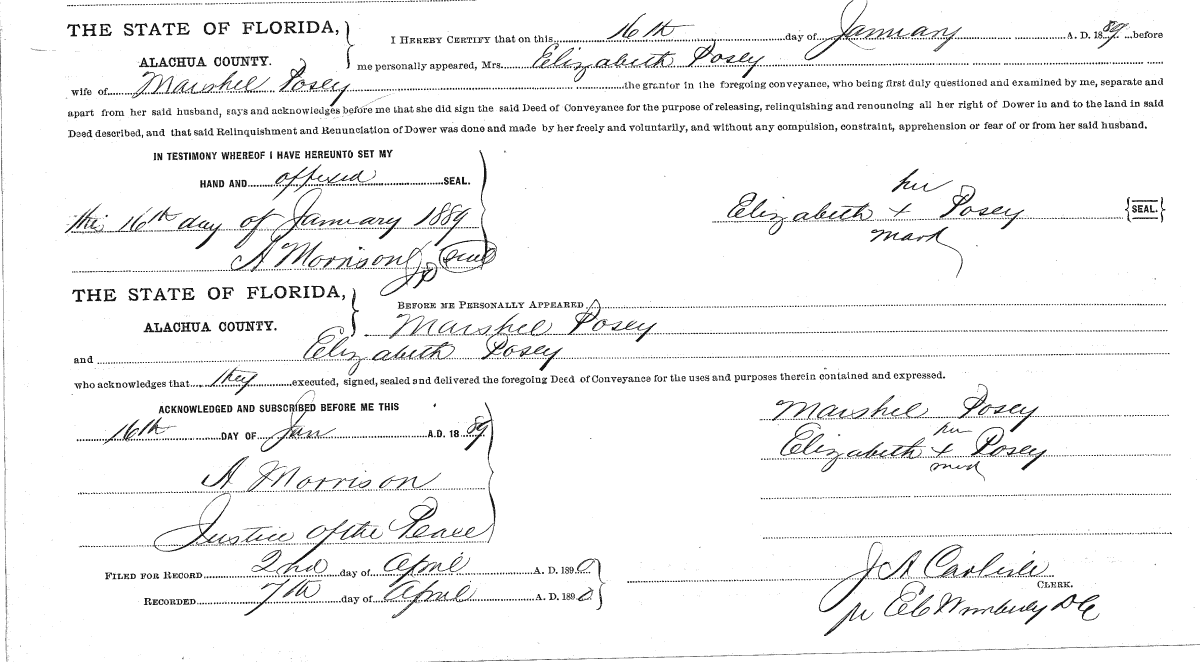 THE STATE OF FLORIDA,
I HEREBY CERTIFY that on this 16th day of January A. D. 1889 before
ALACHUA COUNTY.
me personally appeared, Mrs. Elizabeth Posey
wife of Marshel Posey the grantor in the foregoing conveyance, who being first duly questioned and examined by me, separate and
apart from her said husband, says and acknowledges before me that she did sign the said Deed of Conveyance for the purpose of releasing, relinquishing and renouncing all her right of Dower in and to the land in said
Deed described, and that said Relinquishment and Renunciation of Dower was done and made by her freely and voluntarily, and without any compulsion, constraint, apprehension or fear of or from her said husband.
IN TESTIMONY WHEREOF I HAVE HEREUNTO SET MY
HAND AND affixed SEAL.
this 16th day of January 1889
A Morrison JP seal
her
Elizabeth + Posey SEAL.
mark
THE STATE OF FLORIDA,
BEFORE ME PERSONALLY APPEARED
ALACHUA COUNTY.
Marshel Posey
and Elizabeth Posey
who acknowledges that they executed, signed, sealed and delivered the foregoing Deed of Conveyance for the uses and purposes therein contained and expressed.
ACKNOWLEDGED AND SUBSCRIBED BEFORE ME THIS
16th DAY OF Jan A.D. 1889
A Morrison
Justice of the Peace
Marshel Posey
her
Elizabeth + Posey
mark
FILED FOR RECORD 2nd day of April A. D. 1890
RECORDED 7th day of April A. D. 1890
J A Carlisle
CLERK.
pr E C Wimberly DC